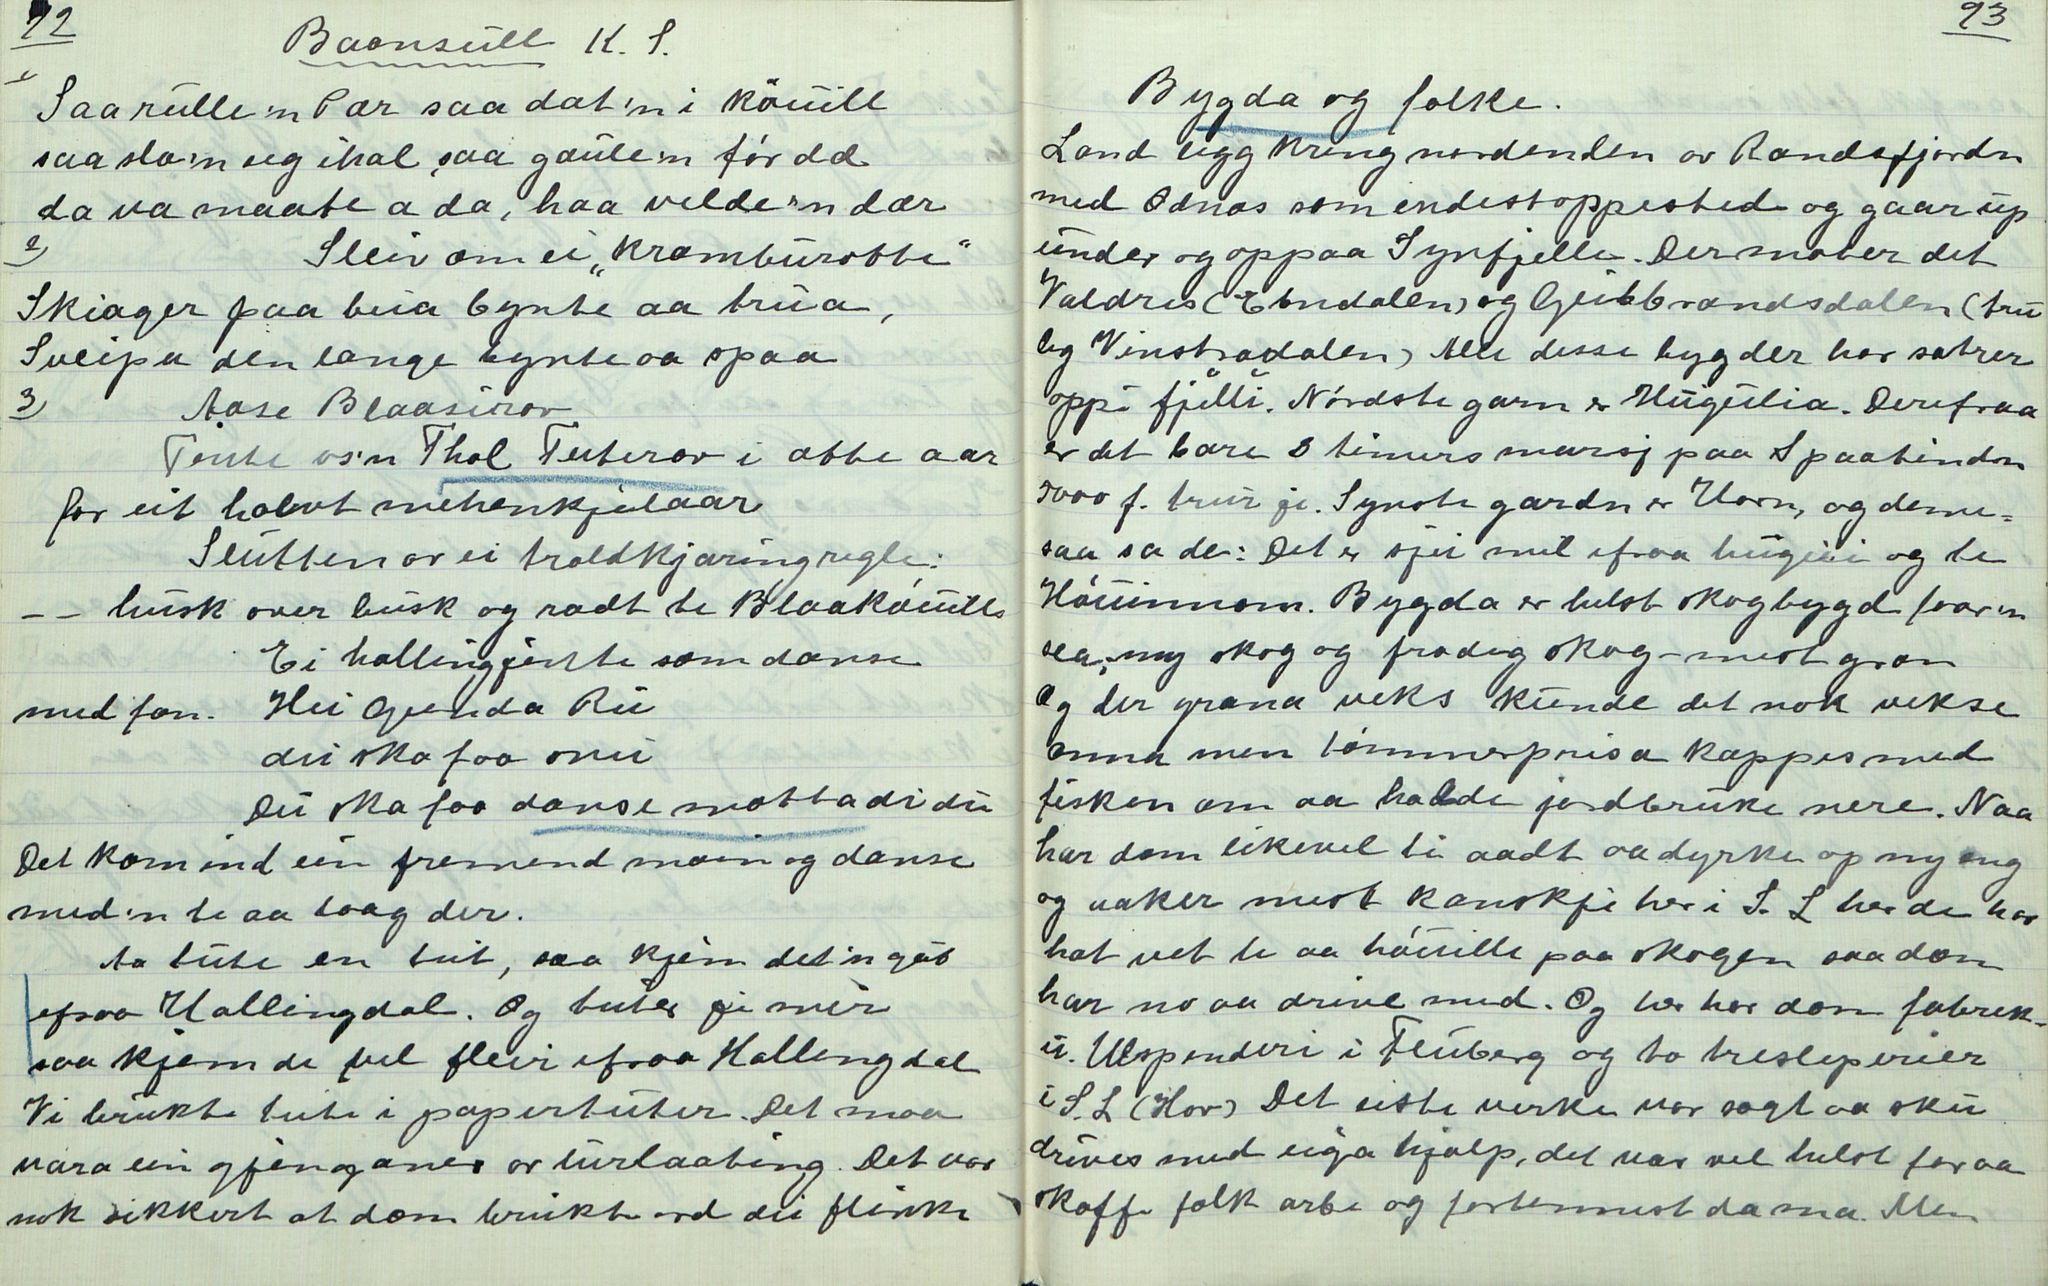 92
Baansull K. S.
1
Saa rulle'n Pær saa dat'n i köuill
saa slo'n seg ihæl, saa gaule'n før dd
da va maate a da, haa velde'n dær
2) Sleiv om ei „krambürotte"
Skjager paa beia bynte aa trua,
Sveipa den lange bynte aa spaa
3) Aase Blaasirov
Tente os'n Thol Teterov i otte aar
for eit halvt mehenkjelaar
Slutten or ei troldkjæringregle:
– – busk over busk og radt te Blaaköuills
Ei hallingjente som danse
med fan. Hei Gunda Rü
dü ska faa snü
Dü ska faa danse mottadi dü
Det kom ind ein fremend mann og danse
med'n te aa laag der.
Aa tute en tut, saa kjem det'n gut
ifraa Hallingdal. Og tuter je meir
saa kjem de vel fleir ifraa Hallingdal
Vi brukte tute i papertuter. Det maa
vara ein gjenganer or lurlaating. Det var
nok sikkert at dom brukte ord di flinke
93
Bygda og folke.
Land ligg kring nordenden av Randsfjordn
med Odnæs som endestoppested og gaar up
under og oppaa Synfjelle. Der møter det
Valdres (Etndalen) og Gudbrandsdalen (tru
leg Vinstradalen) Alle desse bygder har sætrer
oppi fjelli. Nördste garn er Hugulia. Derifraa
er det bare 3 timers marsj paa Spaatinden
5000 f. trur je. Synste gardn er Horn, og deme-
saa sa de: Det er sjui mil ifraa hugüi og te
Höuinnom. Bygda er helst skogbygd faar'n
sea; my skog og frodig skog – mest gran
Og der grana veks kunde det nok vekse
anna men tømmerprisa kappes med
fisken om aa halde jordbruke nere. Naa
har dom likevel ti aadt aa dyrke op ny eng
og aaker mest kanskje her i S. L her de har
hat vet te aa höuille paa skogen saa dom
har no aa drive med. Og her har dom fabrek-
ü. Ulspenderi i Flüberg og to tresliperier
i S. L (Hov) Det siste verke var sagt aa sku
drives med eiga hjælp, det var vel helst for aa
skaffe folk arbe og fortennest dama. Men